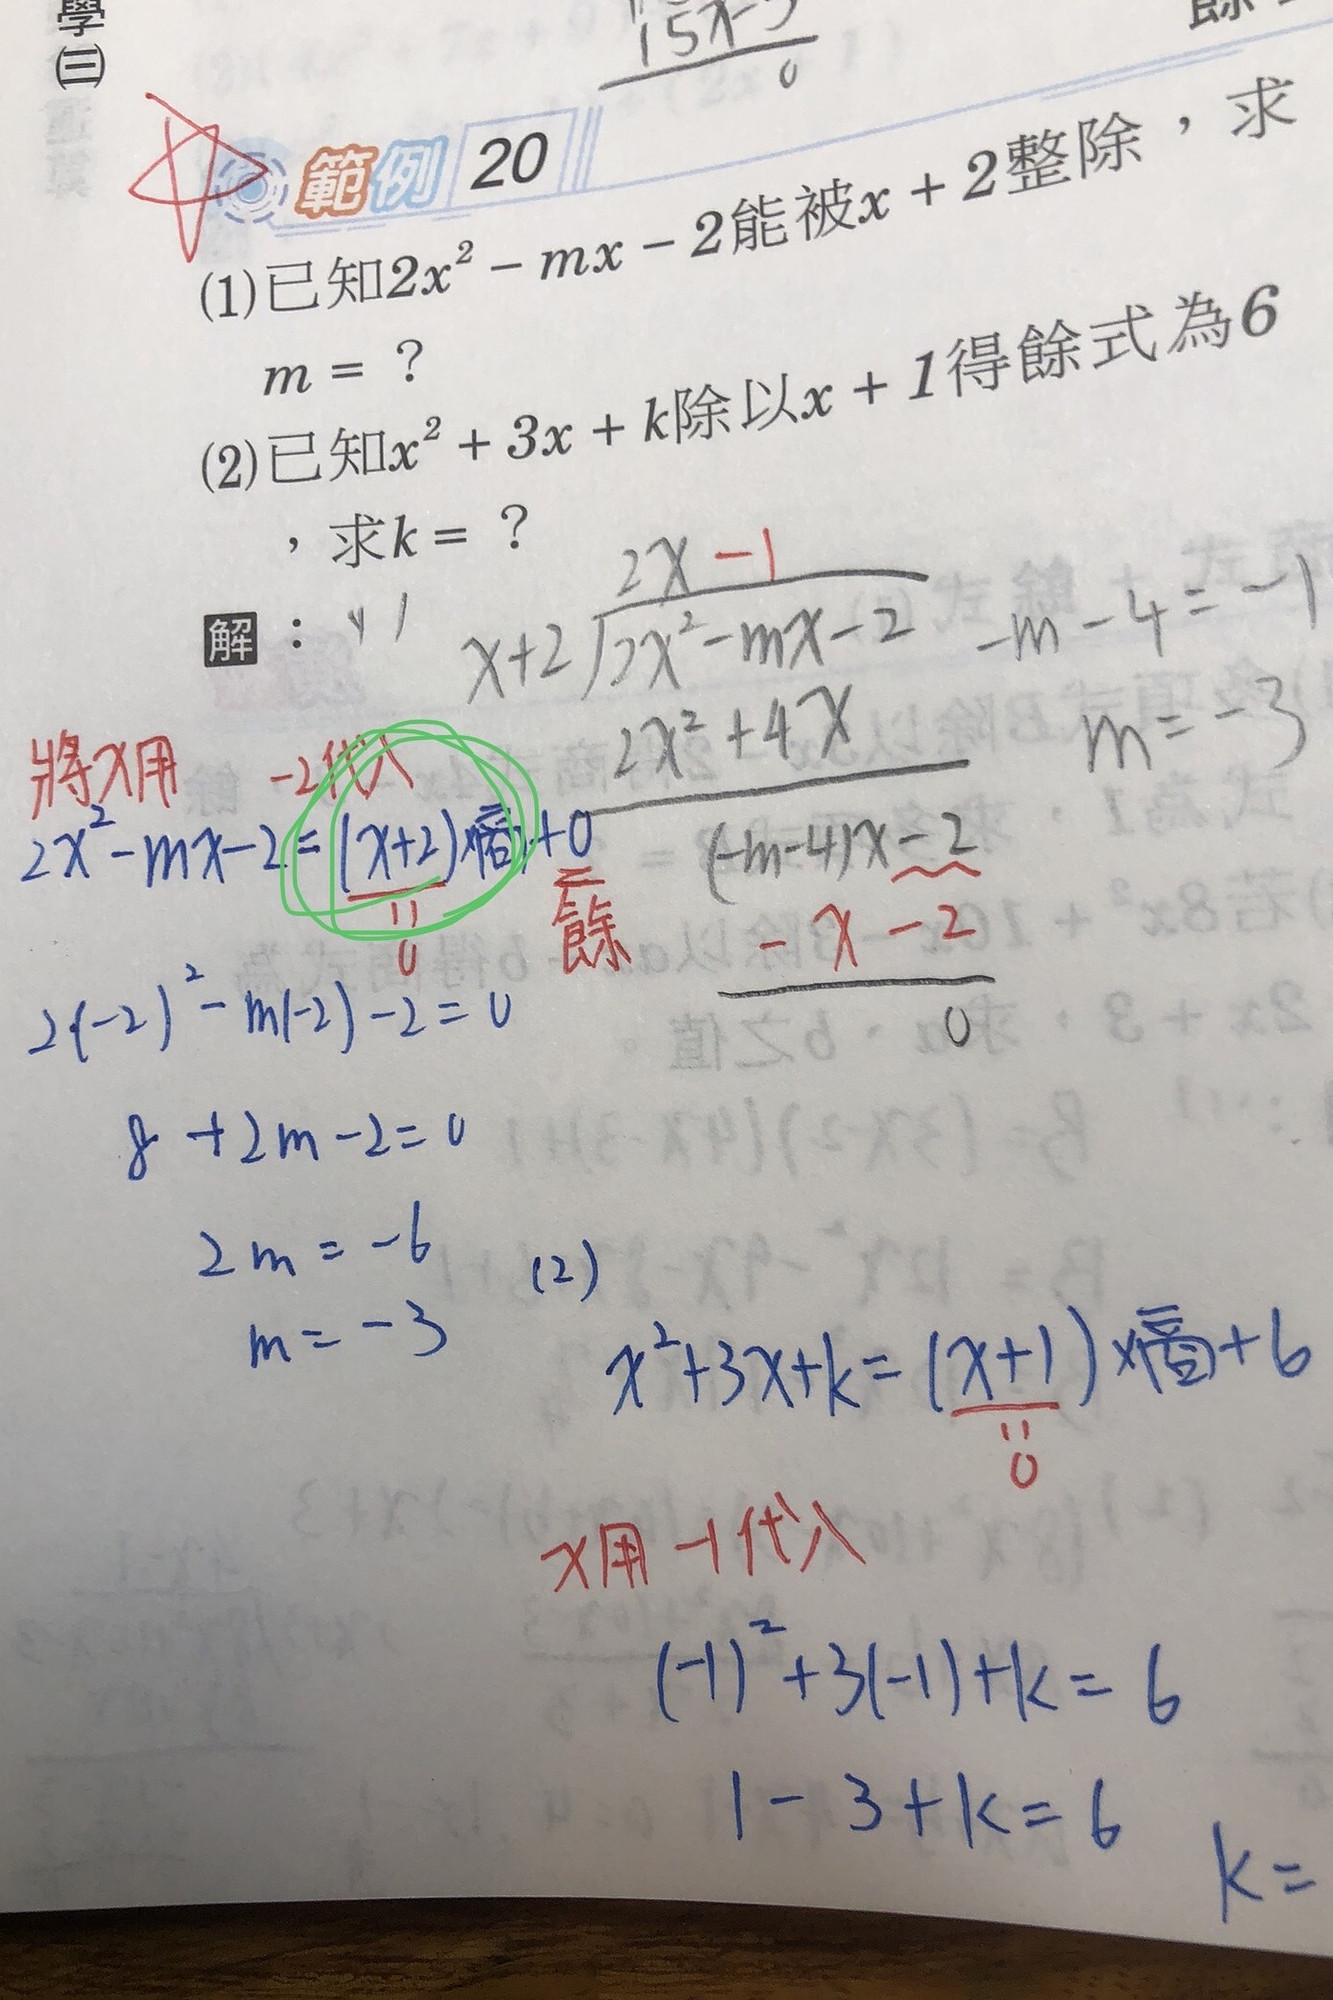 學(三)
15x-5
0
範例 20
(1)已知2x² − mx − 2能被x + 2整除，求
m = ？
(2)已知x² + 3x + k除以x + 1得餘式為6
，求k = ？
解：
2x -1
x+2 2x²-mx-2
2x²+4x
(-m-4)x-2
-x-2
0
-m-4=-1
m=-3
將x用 -2代入
2x²-mx-2=(x+2)×商+0
=0 餘
2(-2)²-m(-2)-2=0
8+2m-2=0
2m=-6
m=-3
(2)
x²+3x+k=(x+1)×商+6
=0
x用-1代入
(-1)²+3(-1)+k=6
1-3+k=6
k=